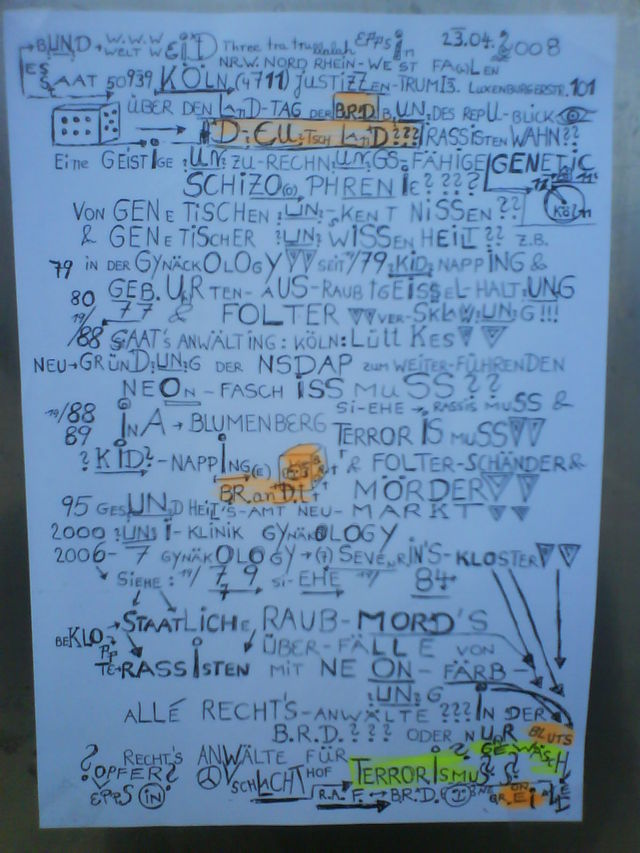 → BUND → W.W.W EiD Three tra trullalah EPPS in 23.04.2008
WELT W N.R.W. NORD RHEIN-WEST FA(W)LEN
ES SAAT 50939 KÖLN (4711) JUSTIZZEN- LUXENBURGERSTR. 101
ÜBER DEN LanD-TAG DER B.R.D. B.UN.DES REPU-BLICK
D-EU-TSCH LanD??? RASSISTEN WAHN??
EiNE GEISTIGE :UN: ZU-RECHN:UNGS-FÄHIGE GENETiC
SCHIZO(O) PHRENIE????
VON GENETISCHEN :UN:-KENTNISSEN?? KÖLN
& GENETISCHER :UN: WISSENHEIT?? Z.B.
79 IN DER GYNÄCKOLOGY SEIT 1/79 :KID: NAPPING &
80 GEB.URTEN-AUS-RAUB GEISSEL-HALT:UNG
77 & FOLTER VER-SKLAW:UN:G!!!
19/88 SAAT'S ANWÄLTING: KÖLN: LÜTTKES
NEU→GRÜND:UN:G DER NSDAP ZUM WEITER-FÜHRENDEN
NEON-FASCHISSMUSS??
19/88 SI-EHE → RASSISMUSS &
89 INA → BLUMENBERG TERRORISMUSS
?KID?-NAPPING(E) & FOLTER-SCHÄNDER &
BRanDt MÖRDER
95 GESUNDHEIT'S-AMT NEU-MARKT
2000 :UN: I-KLINIK GYNÄKOLOGY
2006-7 GYNÄKOLOGY → (7) SEVERIN'S-KLOSTER
SIEHE: 19/79 SI-EHE 19/84
7
BEKLO → STAATLICHE RAUB-MORD'S
PP ÜBER-FÄLLE VON
TE → RASSISTEN MIT NEON-FÄRB-
:UN:G
ALLÉ RECHT'S-ANWÄLTE??? IN DER
B.R.D.??? ODER NUR BLUTS
? RECHT'S ANWÄLTE FÜR GEWÄSCH
OPFER? SCHLACHTHOF TERRORISMUS??
EPPS IN R.A.F. → B.R.D.